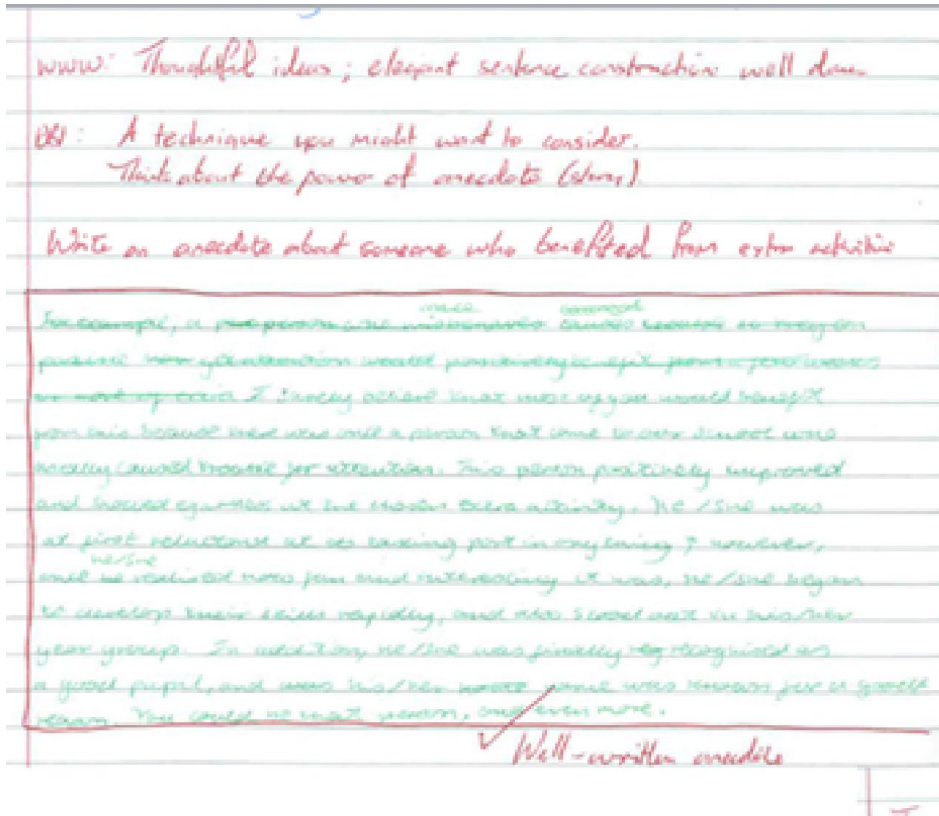 WWW: Thoughtful ideas; elegant sentence construction well done
EBI: A technique you might want to consider.
Think about the power of anecdote (story).
Write an anecdote about someone who benefited from extra activities
For example, a person
I firmly believe that most of you would benefit
from this because there was once a person that came to our school who
really caused trouble for attention. This person positively improved
and showed at the chosen extra activity. He/She was
at first reluctant at taking part in anything; however,
he/she
once he realised how fun and interesting it was, he/she began
to develop their skills rapidly, and also stood out in his/her
year group. In addition, he/she was finally recognised as
a good pupil, and was his/her name was known for a good
reason. You could be that person, and even more.
Well-written anecdote